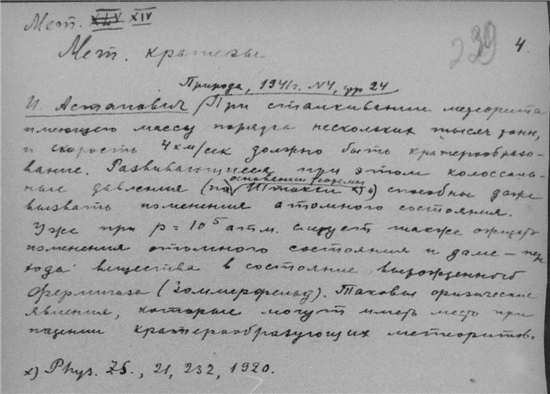 Мет. XIV XIV
Мет. кратеры
239 4.
Природа, 1941 г. N4, стр 24
И. Астапович. При сталкивании метеорита
имеющего массу порядка нескольких тысяч тонн,
и скорость 4 км/сек должно быть кратерообразо-
вание. Развивающиеся при этом колоссаль-
ные давления (по Штакси x)) способны даже
вызвать изменения атомного состояния.
Уже при p = 10⁵ атм. следует также ожидать
изменения атомного состояния и даже – пере
хода вещества в состояние вырожденного
фермигаза (Зоммерфельд). Таковы физические
явления, которые могут иметь место при
падении кратерообразующих метеоритов.
x) Phys. ZS., 21, 232, 1920.